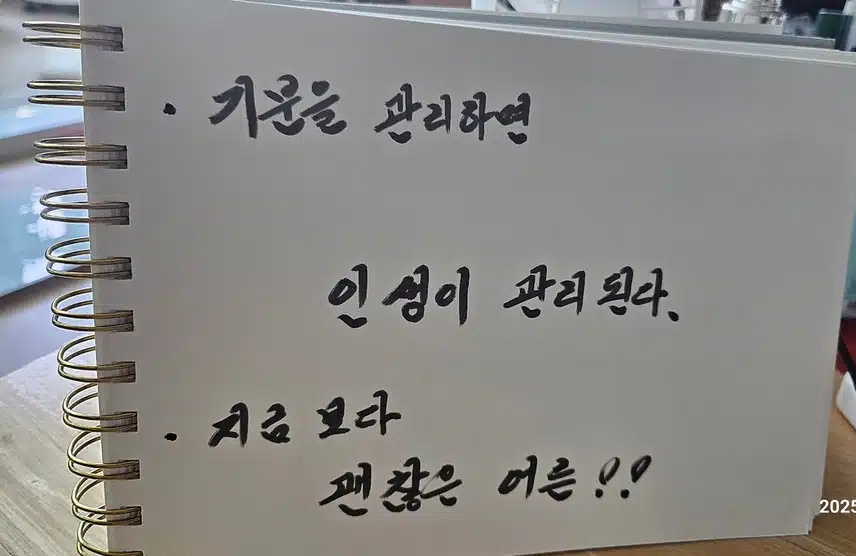 · 기분을 관리하면
인생이 관리된다.
· 지금보다
괜찮은 어른!!
2025